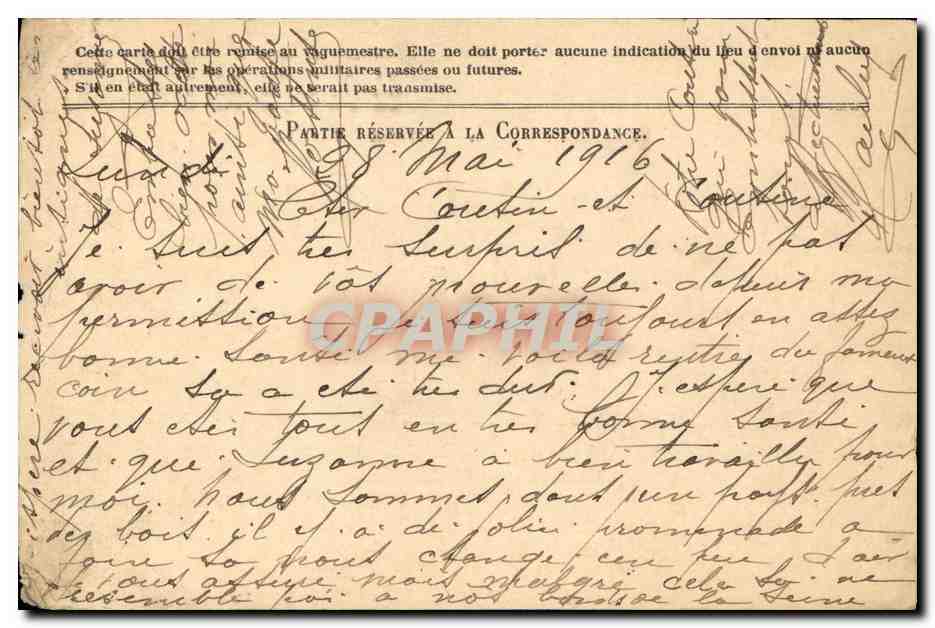 Cette carte doit être remise au vaguemestre. Elle ne doit porter aucune indication du lieu d'envoi ni aucun
renseignement sur les opérations militaires passées ou futures.
S'il en était autrement, elle ne serait pas transmise.
PARTIE RÉSERVÉE A LA CORRESPONDANCE.
Lundi 28 Mai 1916
Cher Cousin et Cousine
Je suis tres surpris de ne pas
avoir de vôs nouvelles depuis ma
permission Je suis toujours en assez
bonne santé me voila rentrés du fameux
coin sa a eté tres dur. J'espere que
vous etes tout en tres bonne santé
et que Suzanne a bien travailler pour
moi. nous sommes dans un pays pres
des bois il y a de jolie promenade a
faire sa nous change un peu d'air
je vous assure mais malgré cela sa ne
resemble pas a nos bords de la Seine
CPAPHIL
J'espere recevoir bientot de
votre Cousin
qui pour